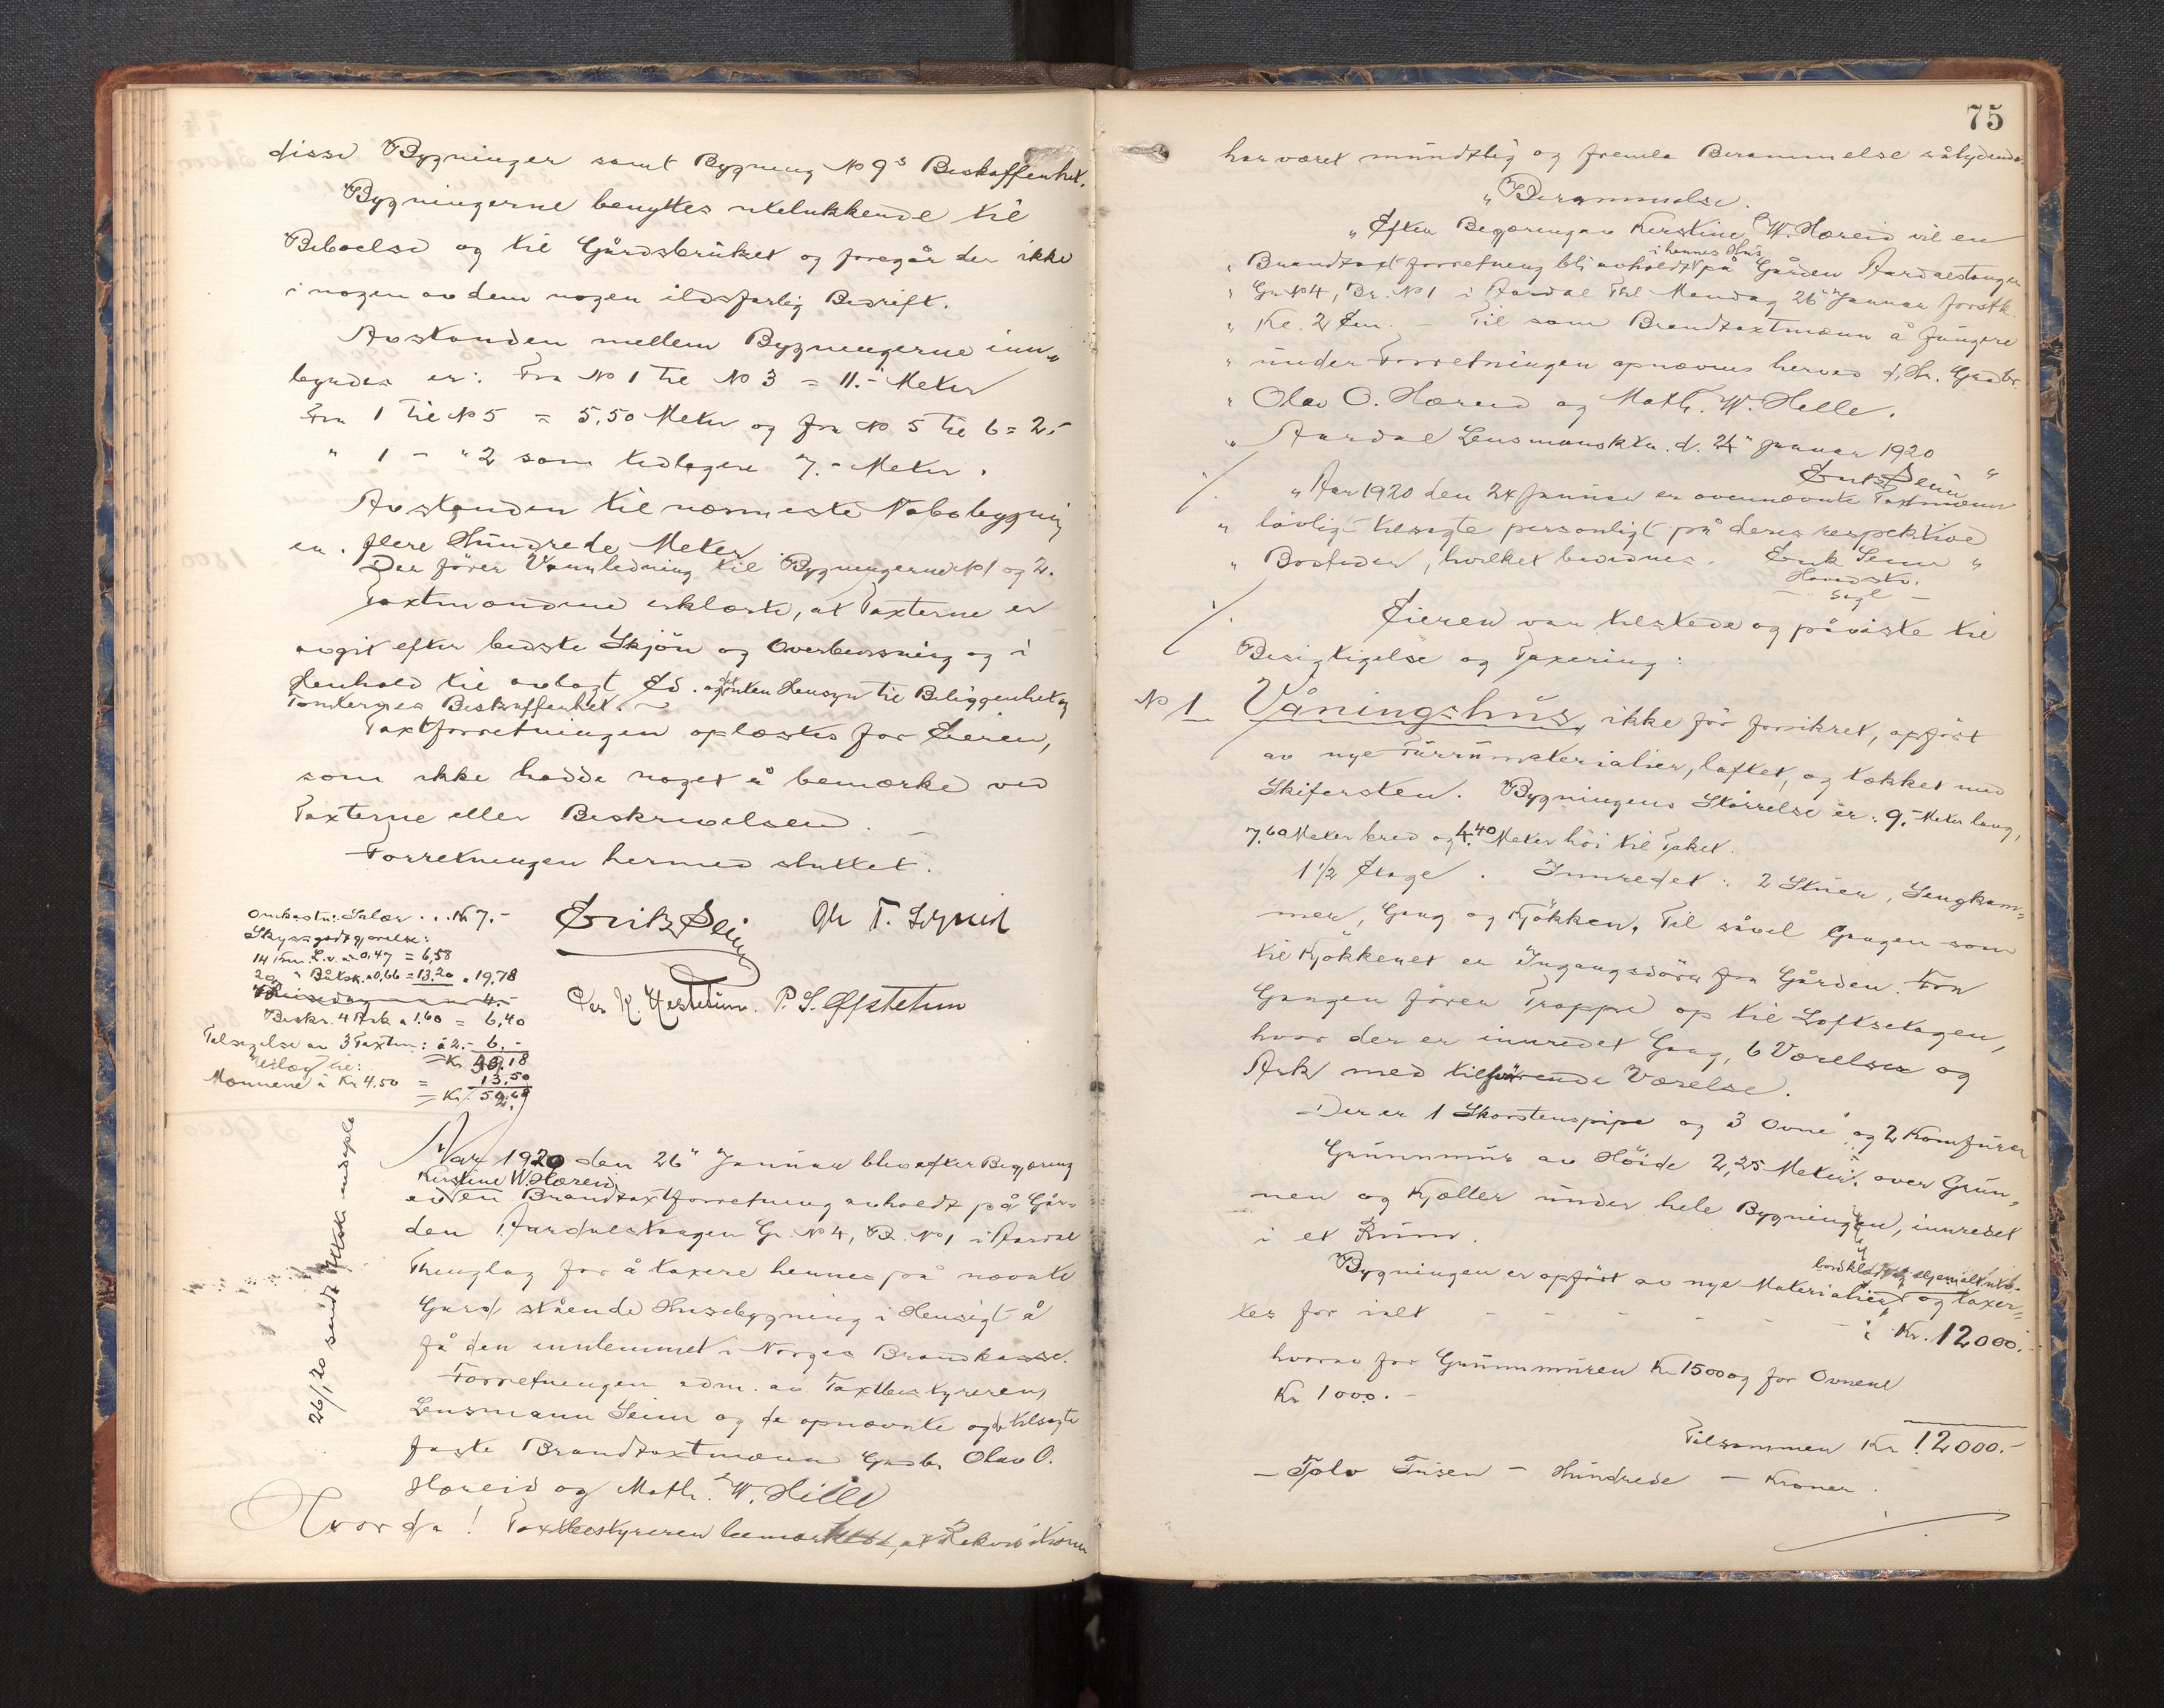 disse Bygninger samt Bygning No 9s Beskaffenhet.
Bygningerne benyttes utelukkende til
Beboelse og til Gårdsbruket og foregår der ikke
i nogen av dem nogen ildsfarlig Bedrift.
Avstanden mellem Bygningerne inn-
byrdes er: Fra No 1 til No 3 = 11.- Meter
Fra 1 til No 5 = 5,50 Meter og fra No 5 til 6 = 2,-
" 1 - " 2 som tidligere 7.- Meter.
Avstanden til nærmeste Nabobygning
er flere Hundrede Meter.
Der fører Vannledning til Bygningerne No 1 og 2.
Taxtmændene erklærte, at Taxterne er
avgit efter bedste Skjön og Overbevisning og i
Henhold til avlagt Ed. uten Hensyn til Beliggenhet og
Tomternes Beskaffenhet. -
Taxtforretningen oplæstes for Eieren,
som ikke hadde noget å bemærke ved
Taxterne eller Beskrivelsen. -
Forretningen hermed sluttet.
Omkostn: Salær . . . Kr 7.-
Skyssgodtgjørelse:
14 Km. L.v. a 0,47 = 6,58
20 " Båtsk. a 0,66 = 13.20 . 19,78
Reisedag 4.-
Beskr. 4 Ark a 1.60 = 6,40
Tilsigelse av 3 Taxtm: à 2.- 6.-
= Kr 39,18
Utlæg til:
Mænnene à Kr 4.50 = 13,50
= Kr. 52,68
Erik Seim
Per K. Hestetun. P. S. Ofstetun
26/1 20 sendt
Aar 1920 den 26" Januar blev efter Begjæring
Kirstine W. Hæreid
av en Brandtaxtforretning avholdt på Går-
den Aardalstangen Gr. No 4, B. No 1 i Aardal
Thinglag for å taxere hennes på nævnte
Gård stående Husebygning i Hensigt å
få den innlemmet i Norges Brandkasse.
Forretningen adm. av Taxtbestyreren,
Lensmann Seim og de opnævnte og tilsagte
faste Brandtaxtmænn Gardbr. Olav O.
Hæreid og Math. W. Hille
Hvorda! Taxtbestyreren bemærkede, at Rekvisitionen
75
har været mundtlig og fremla Berammelse sålydende
"Berammelse.
"Efter Begjæring av Kirstine W. Hæreid vil en
i hennes Hus
" Brandtaxtforretning bli avholdt på Gården Aardalstangen
" Gr. No 4, Br. No 1 i Aardal Thl Mandag 26" Januar førstk.
" Kl. 2 Em. - Til som Brandtaxtmænn å fungere
" under Forretningen opnævnes herved d, Hr. Gardbr.
" Olav O. Hæreid og Math. W. Helle.
" Aardal Lensmannsktr. d. 24" Januar 1920
Erik Seim "
"Aar 1920 den 24 Januar er ovennævnte Taxtmænn
" lovlig tilsagte personligt på deres respektive
" Bosteder, hvilket bevidnes. Erik Seim "
Hovedstv.
- Segl -
Eieren var tilstede og påviste til
Besigtigelse og Taxering:
No 1 Våningshus, ikke før forsikret, opført
av nye Furrumaterialier, laftet, og tækket med
Skifersten. Bygningens Størrelse er: 9.- Meter lang,
7.60 Meter bred og 4.40 Meter höi til Taket.
1 1/2 Etage. Innredet: 2 Stuer, Sengkam-
mer, Gang og Kjökken. Til såvel Gangen som
til Kjökkenet er Ingangsdörer fra Gården. Fra
Gangen förer Trappe op til Loftsetagen,
hvor der er innredet Gang, 6 Værelser og
Ark med tilhørende Værelse.
Der er 1 Skorstenspipe og 3 Ovne og 2 Komfurer
Grunnmur av Höide 2,25 Meter over Grun-
nen og Kjælter under hele Bygningen, innredet
i et Rum.
Bygningen er opført av nye Materialier og taxer-
tes for ialt - - - - - - Kr. 12000.-
hvorav for Grunnmuren Kr 1500 og for Ovnene
Kr 1000.-
Tilsammen Kr 12000.-
- Tolv Tusen - Hundrede - Kroner.